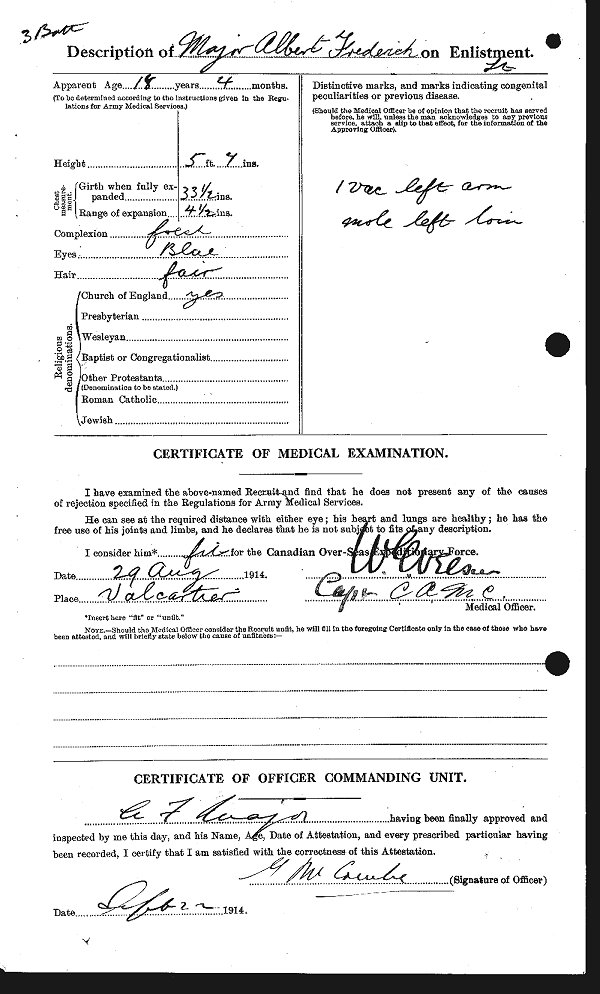 3 Batt
Description of Major Albert Frederick on Enlistment.
Apparent Age 18 years 4 months.
(To be determined according to the instructions given in the Regu-
lations for Army Medical Services.)
Height 5 ft. 7 ins.
Chest measure-ment.
Girth when fully ex-
panded 33 1/2 ins.
Range of expansion 4 1/2 ins.
Complexion fresh
Eyes Blue
Hair fair
Religious denominations.
Church of England yes
Presbyterian
Wesleyan
Baptist or Congregationalist
Other Protestants
(Denomination to be stated.)
Roman Catholic
Jewish
Distinctive marks, and marks indicating congenital
peculiarities or previous disease.
(Should the Medical Officer be of opinion that the recruit has served
before, he will, unless the man acknowledges to any previous
service, attach a slip to that effect, for the information of the
Approving Officer).
1 vac left arm
mole left loin
CERTIFICATE OF MEDICAL EXAMINATION.
I have examined the above-named Recruit and find that he does not present any of the causes
of rejection specified in the Regulations for Army Medical Services.
He can see at the required distance with either eye; his heart and lungs are healthy; he has the
free use of his joints and limbs, and he declares that he is not subject to fits of any description.
I consider him* fit for the Canadian Over-Seas Expeditionary Force.
Date 29 Aug 1914.
Place Valcartier
Capt C A M C
Medical Officer.
*Insert here "fit" or "unfit."
NOTE.—Should the Medical Officer consider the Recruit unfit, he will fill in the foregoing Certificate only in the case of those who have
been attested, and will briefly state below the cause of unfitness:—
CERTIFICATE OF OFFICER COMMANDING UNIT.
A F Major having been finally approved and
inspected by me this day, and his Name, Age, Date of Attestation, and every prescribed particular having
been recorded, I certify that I am satisfied with the correctness of this Attestation.
G McCombe (Signature of Officer)
Date Sep 22 1914.